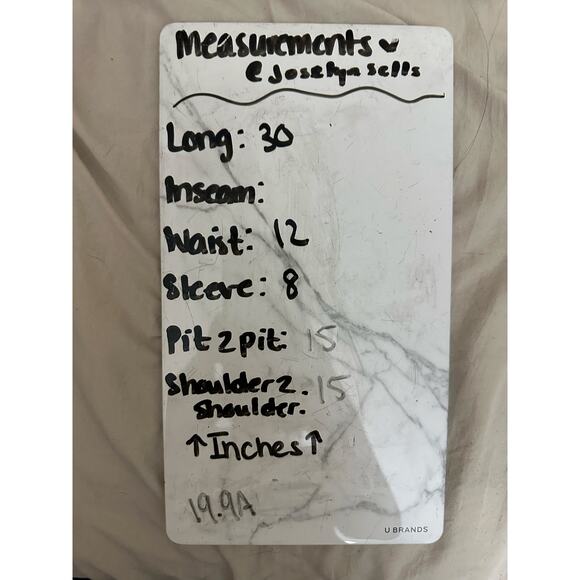 Measurements ♥
@Joselynsells
Long: 30
Inseam:
Waist: 12
Sleeve: 8
Pit 2 pit: 15
Shoulder 2. 15
Shoulder.
↑Inches↑
19.9A
U BRANDS